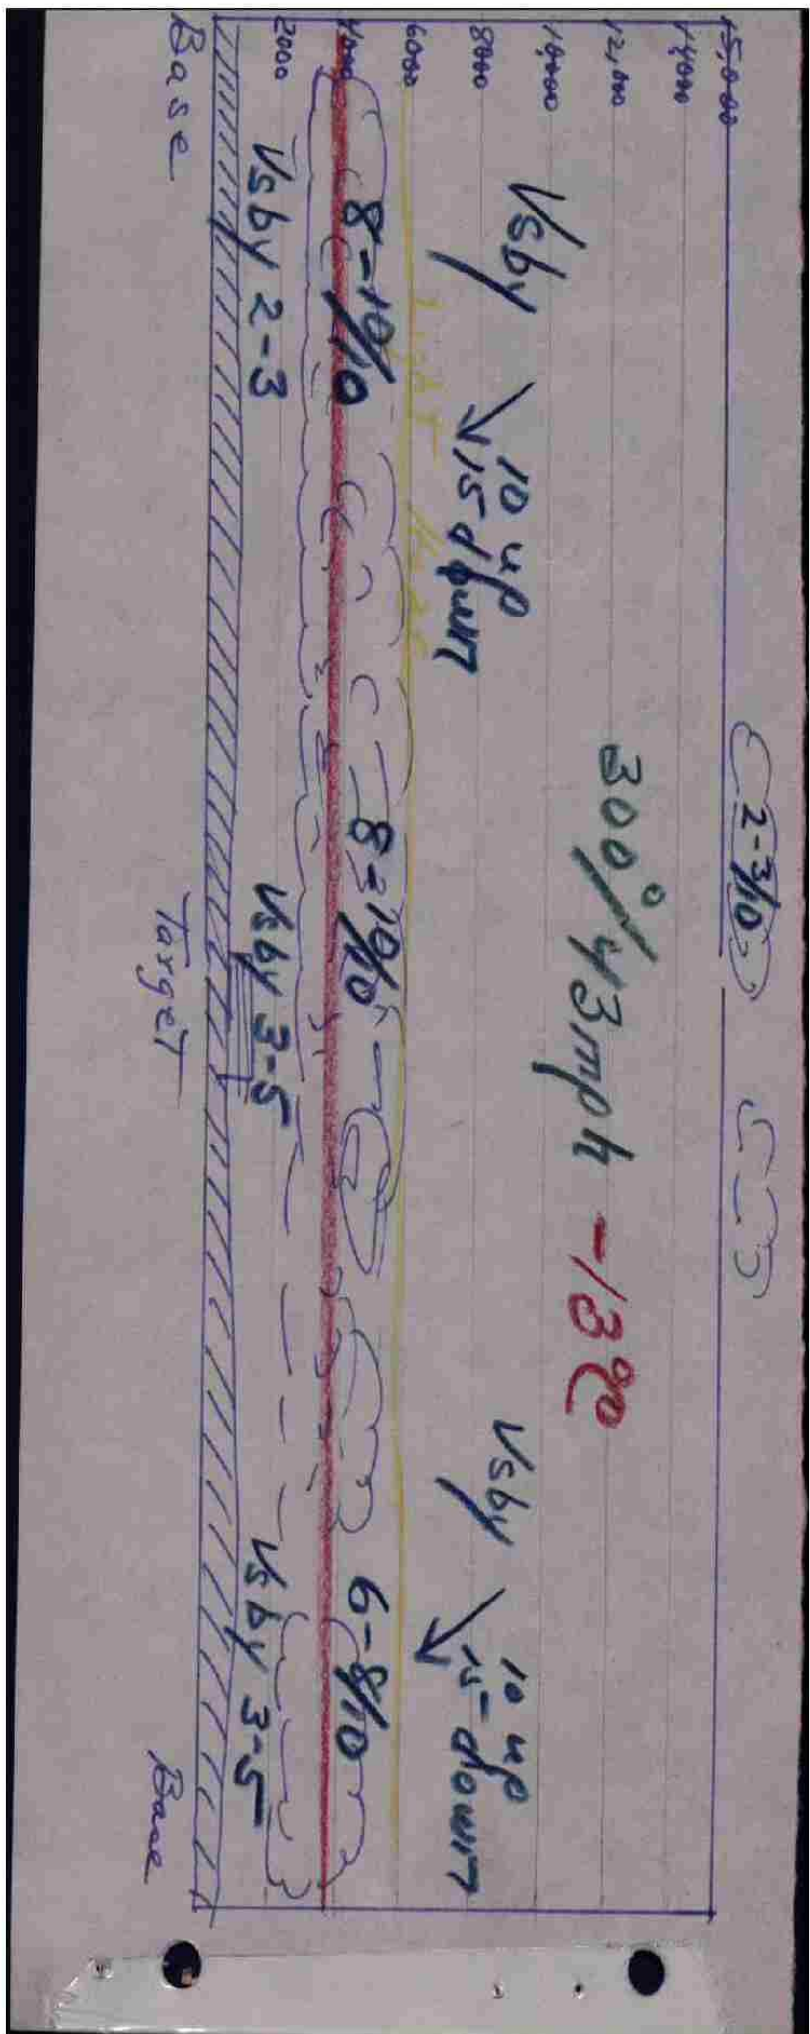 2-3/10
15,000
14,000
12,000
10,000
8000
6000
4000
2000
300°/43mph -13°C
Vsby
10 up
15 down
Vsby
10 up
15 down
8-10/10
8-10/10
6-8/10
Vsby 2-3
Vsby 3-5
Vsby 3-5
Base
Target
Base